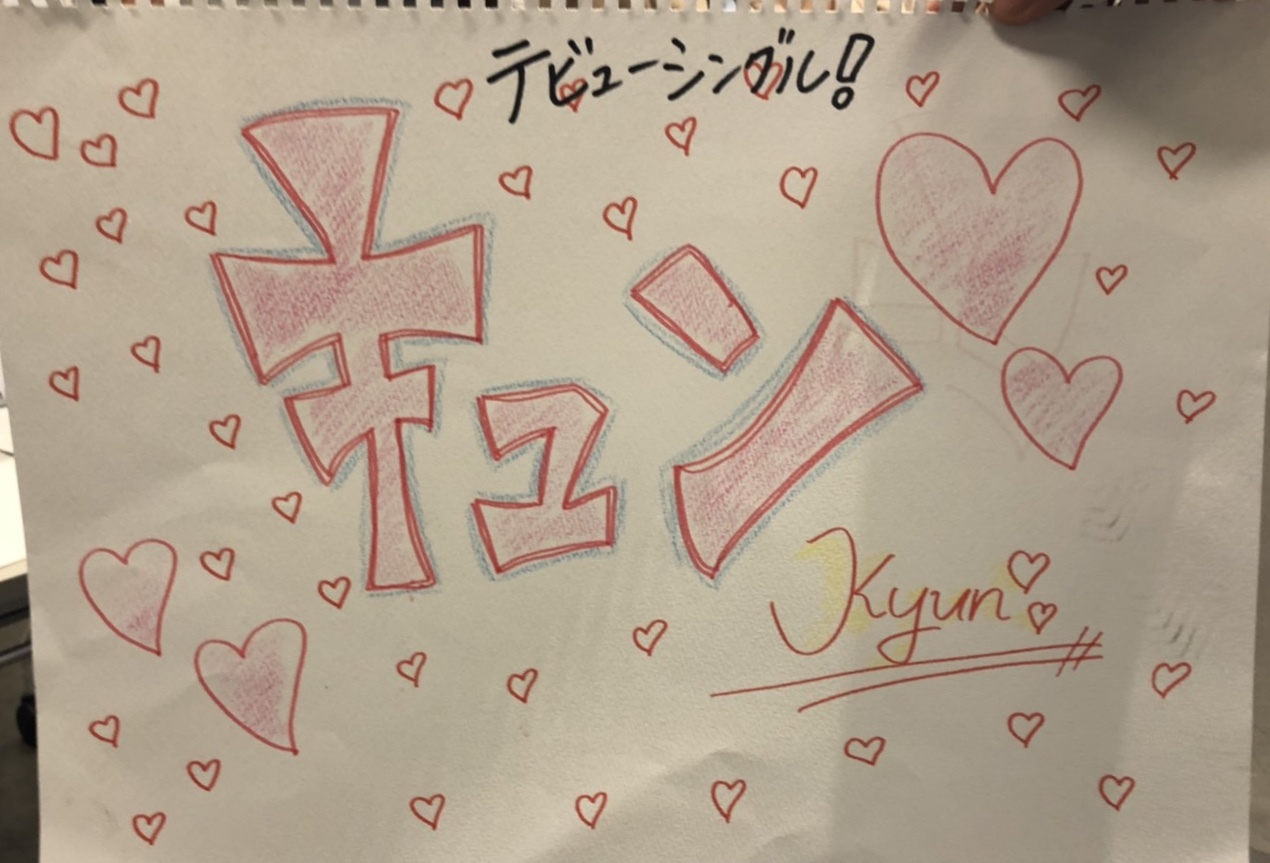 デビューシングル!
キュン
Kyun